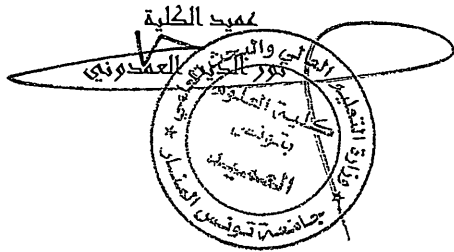 عميد الكلية
نور الدين العمدوني
وزارة التعليم العالي والبحث العلمي
كلية العلوم
بتونس
جامعة تونس المنار